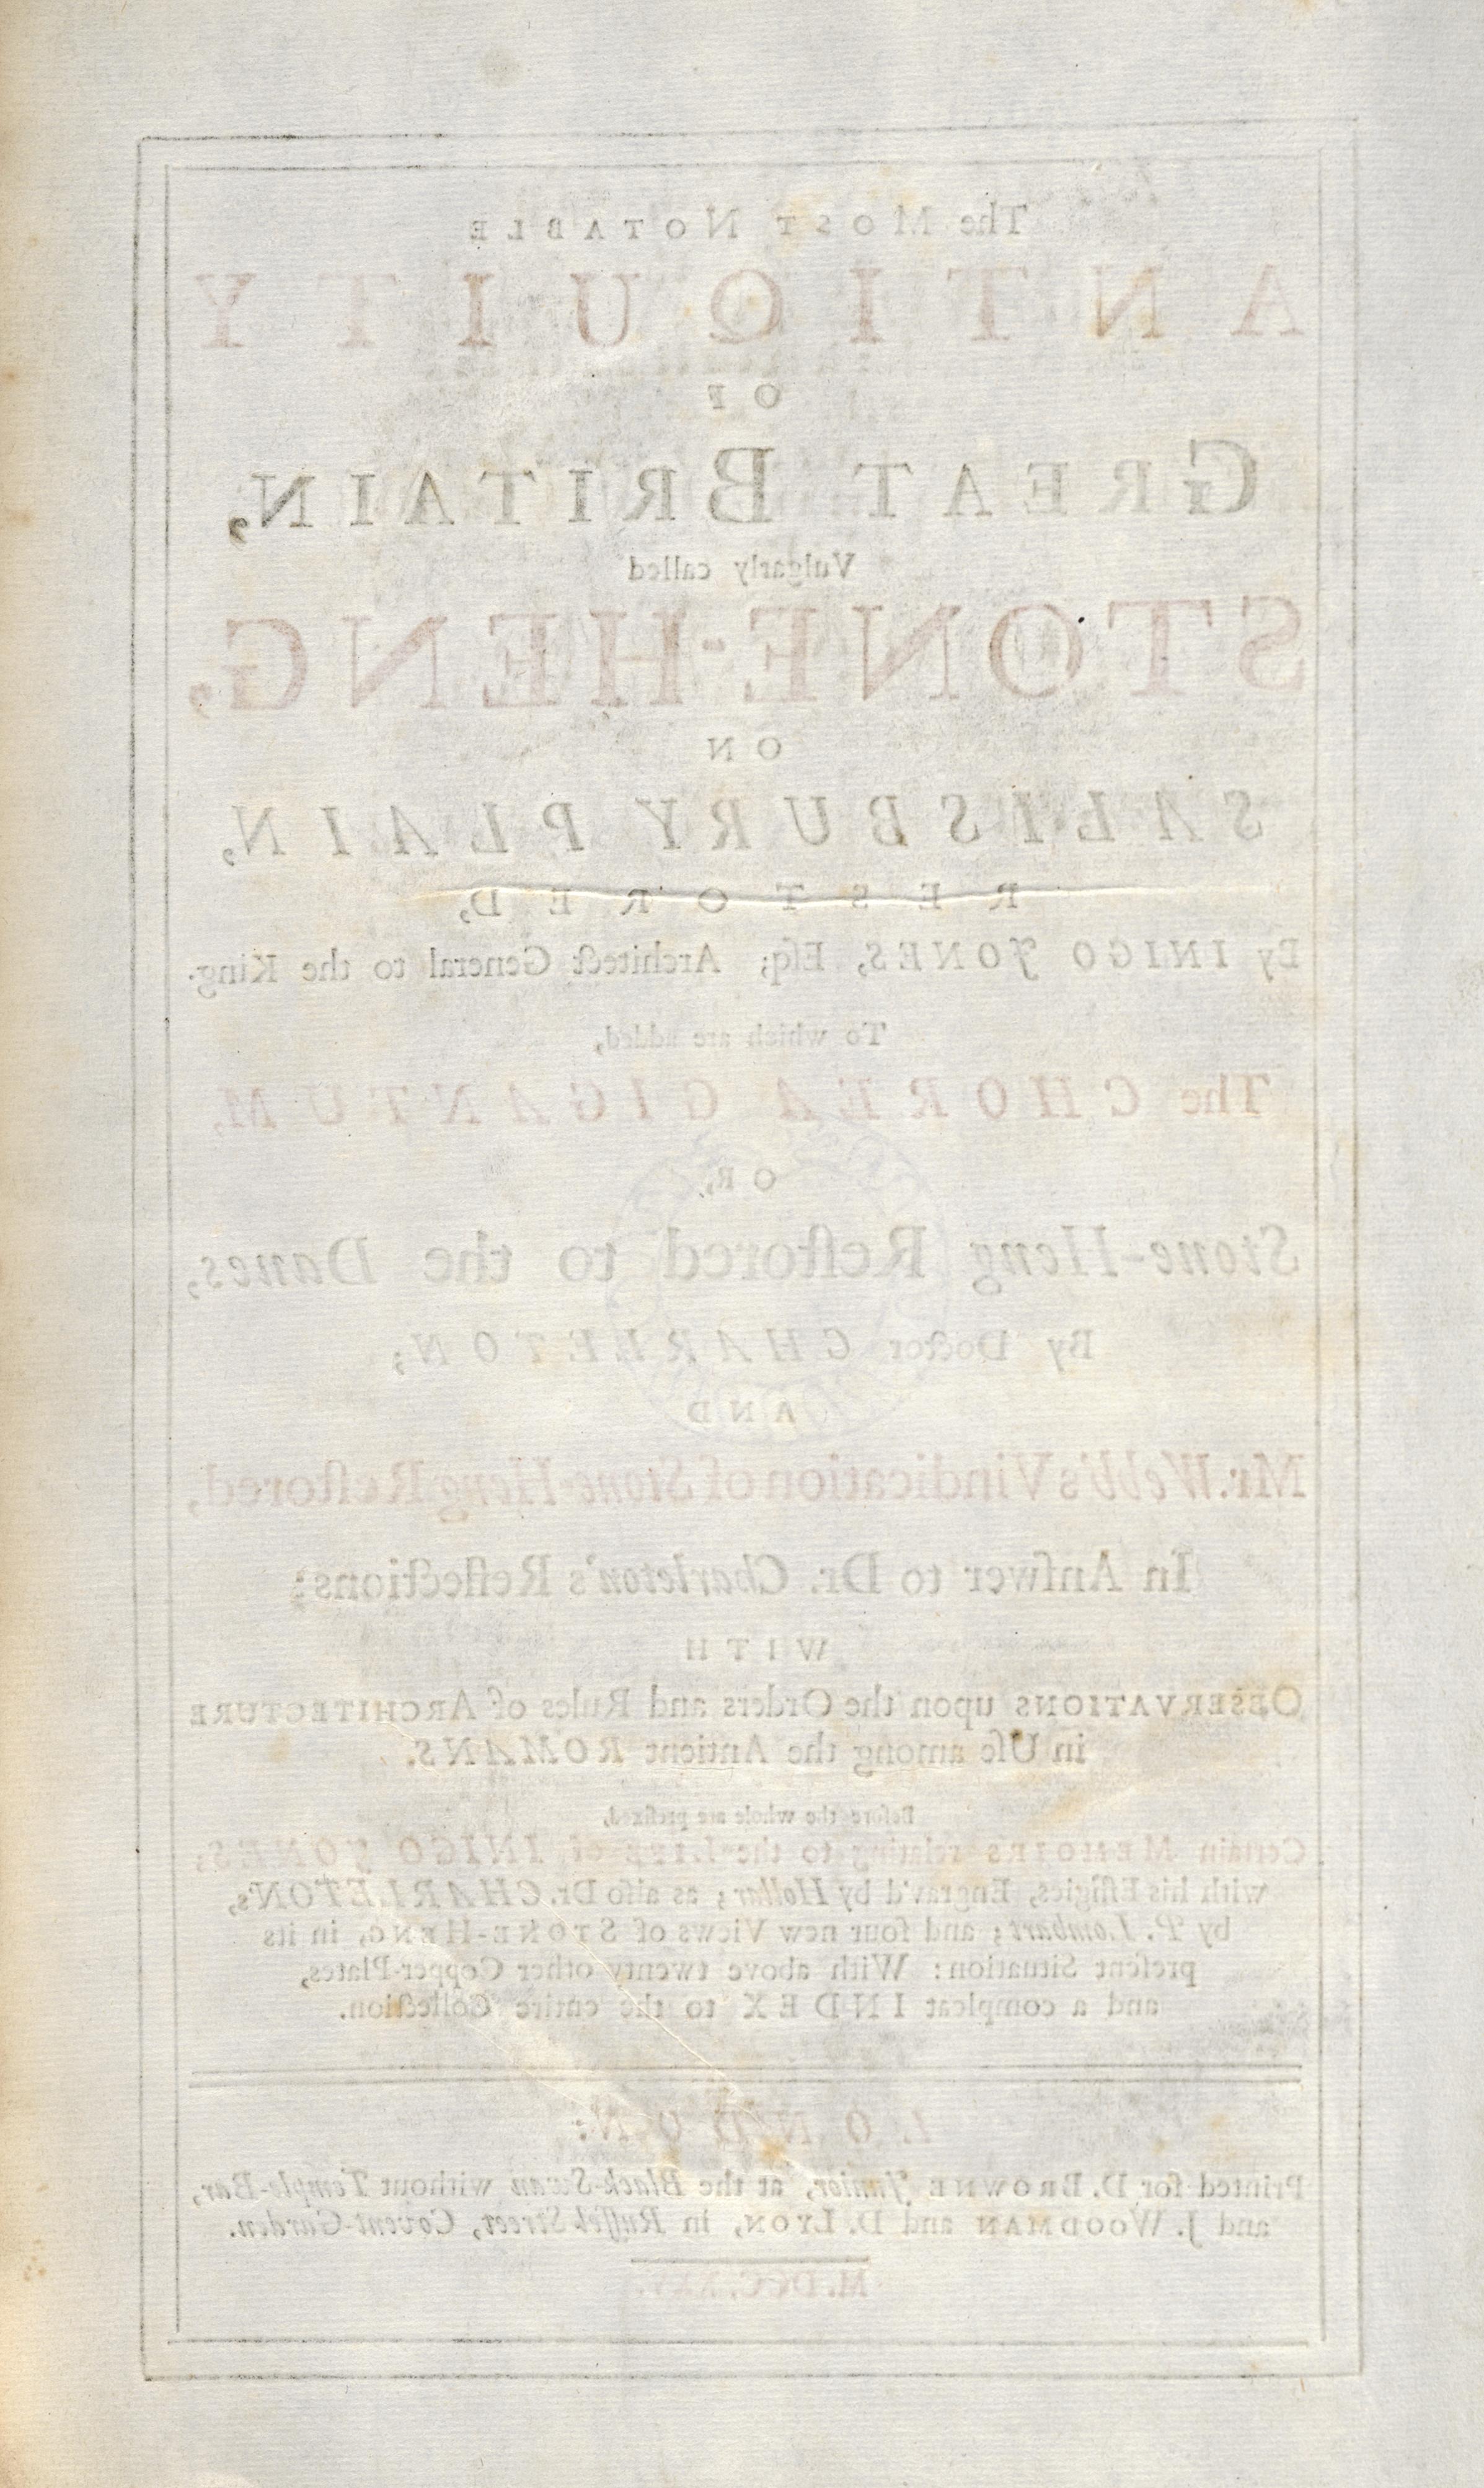 The MOST NOTABLE
ANTIQUITY
OF
GREAT BRITAIN,
Vulgarly called
STONE-HENG,
ON
SALISBURY PLAIN,
RESTORED,
By INIGO JONES, Eſq; Architect General to the King.
To which are added,
The CHOREA GIGANTUM,
OR,
Stone-Heng Reſtored to the Danes,
By Doctor CHARLETON;
AND
Mr. Webb's Vindication of Stone-Heng Reſtored,
In Anſwer to Dr. Charleton's Reflections;
WITH
OBSERVATIONS upon the Orders and Rules of ARCHITECTURE
in Uſe among the Antient ROMANS.
Before the whole are prefixed,
Certain MEMOIRS relating to the LIFE of INIGO JONES;
with his Effigies, Engrav'd by Hollar; as alſo Dr. CHARLETON's,
by P. Lombart; and four new Views of STONE-HENG, in its
preſent Situation: With above twenty other Copper-Plates,
and a compleat INDEX to the entire Collection.
LONDON:
Printed for D. BROWNE Junior, at the Black-Swan without Temple-Bar,
and J. WOODMAN and D. LYON, in Ruſſel-Street, Covent-Garden.
M.DCC.XXV.